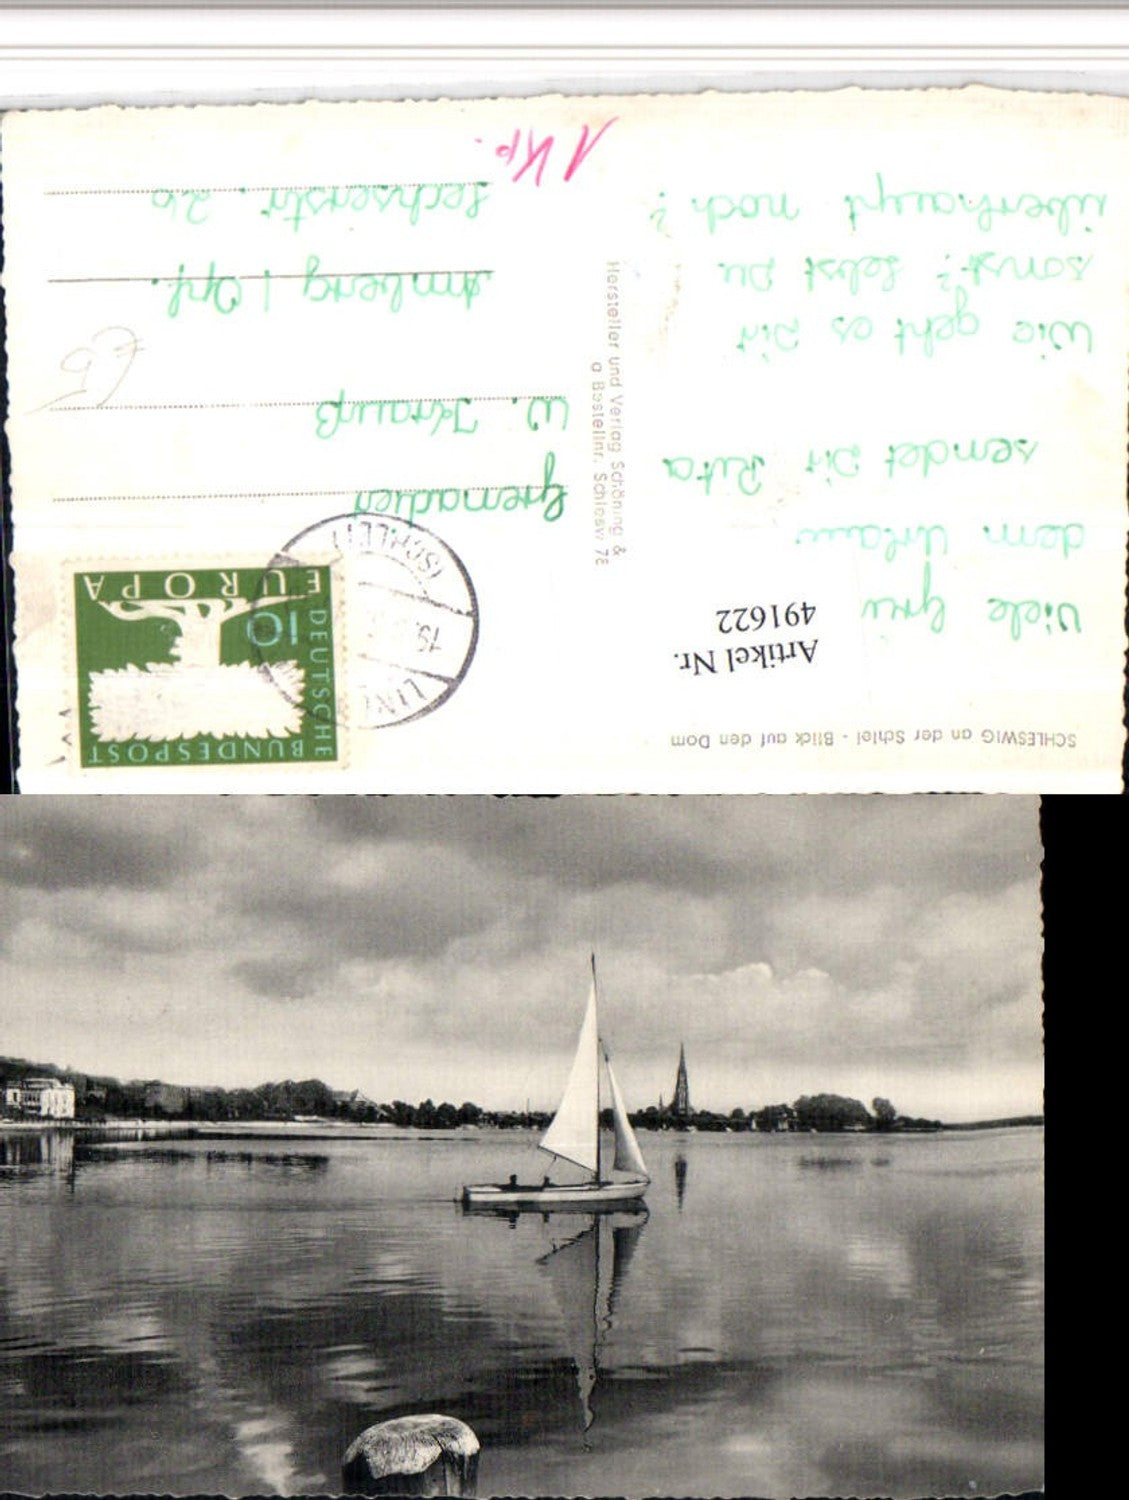 SCHLESWIG an der Schlei - Blick auf den Dom
Artikel Nr.
491622
Viele Grü
dem Urlau
sendet Dir Ruta
Wie geht es Dir
sonst? Lebst Du
überhaupt noch?
Hersteller und Verlag Schöning &
a Bestellnr. Schlesw. 78
DEUTSCHE
BUNDESPOST
10
EUROPA
(SCHLEI)
19.
LIN
Grenadier
W. Krauß
Amberg / Opf.
Sechserstr. 26
1 Kp.